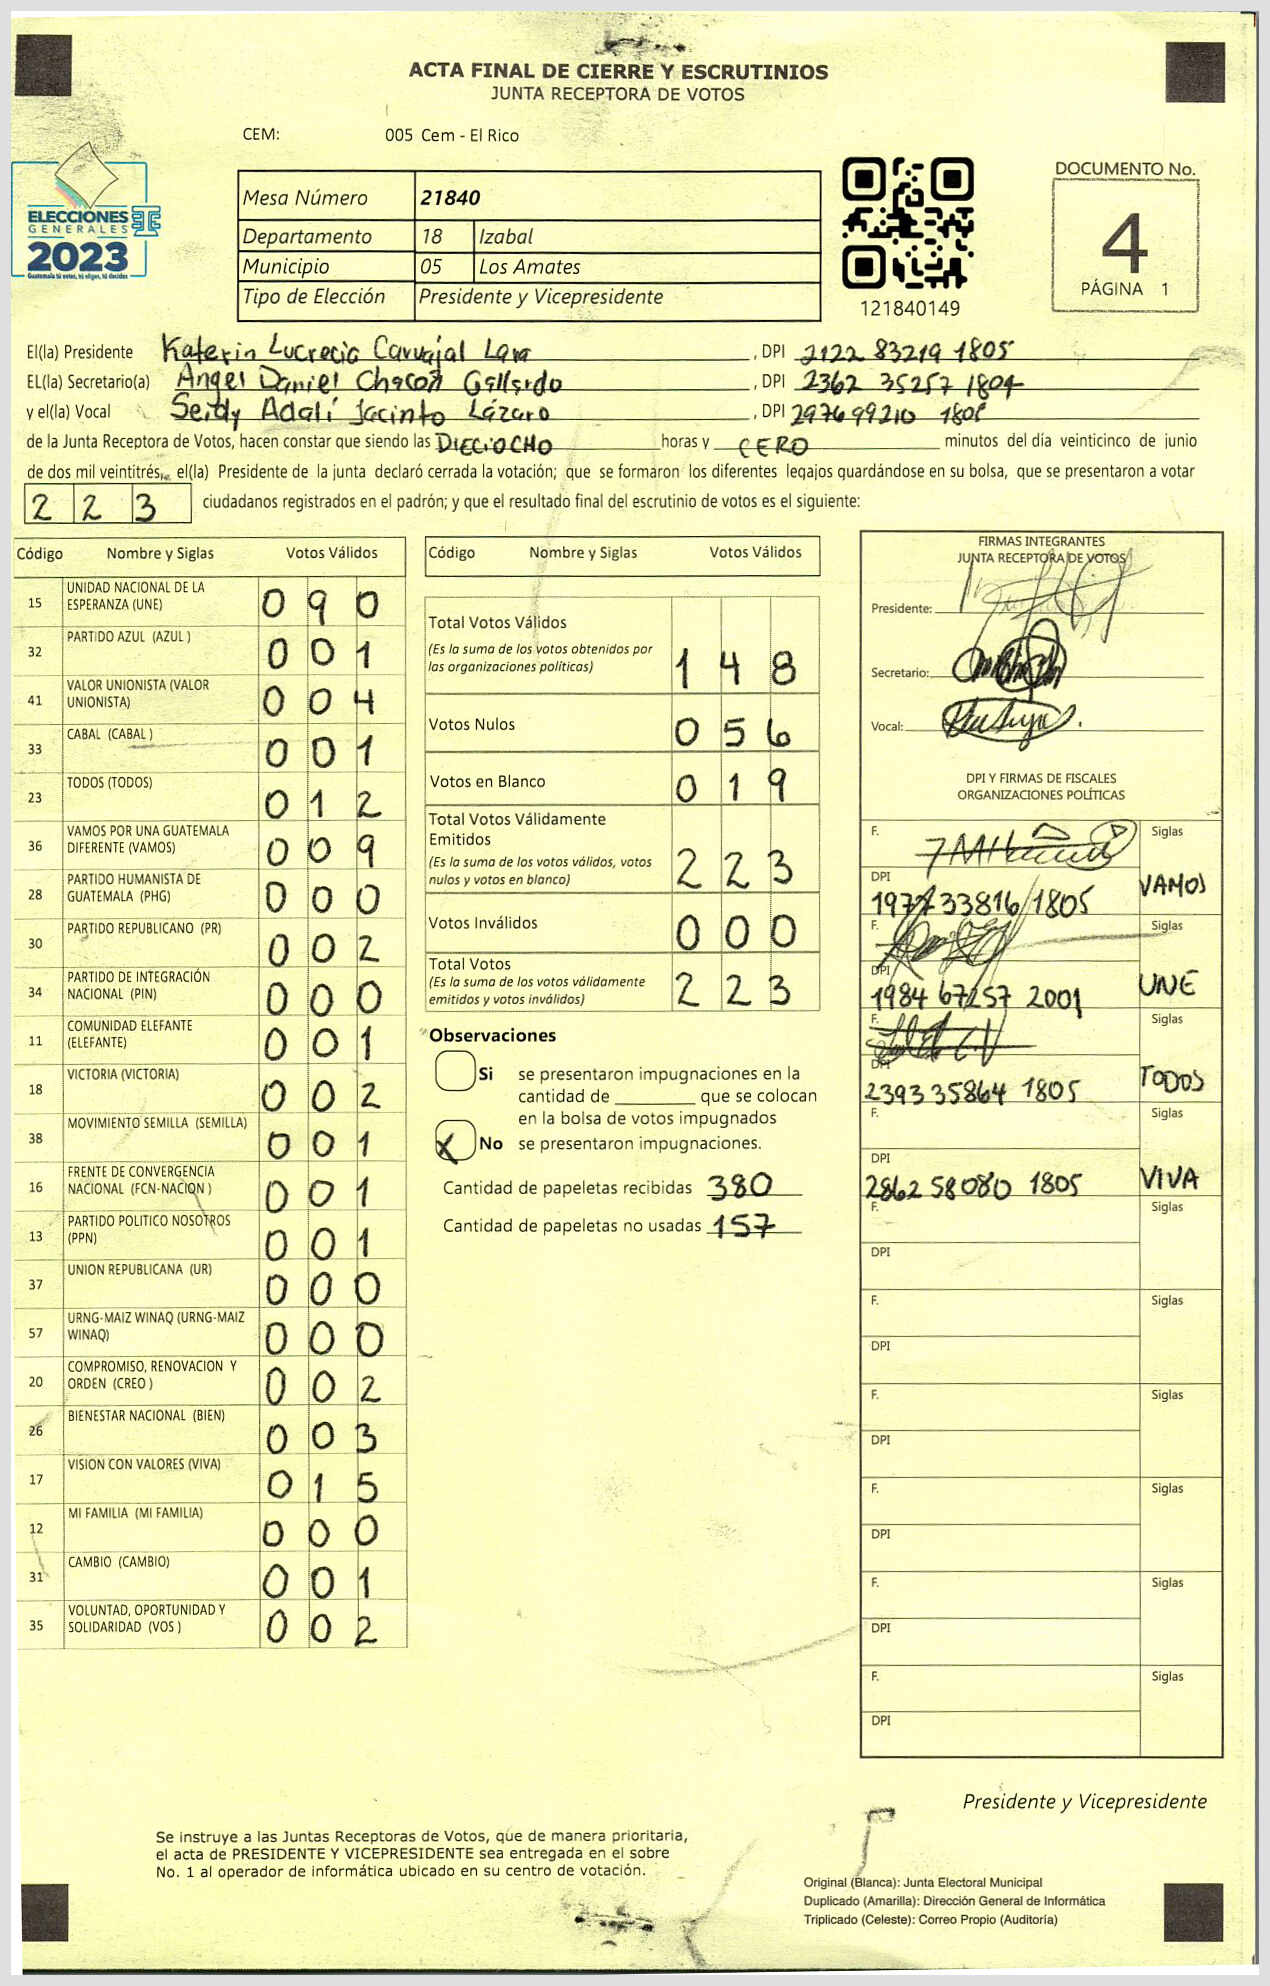 ACTA FINAL DE CIERRE Y ESCRUTINIOS
JUNTA RECEPTORA DE VOTOS
CEM: 005 Cem - El Rico
ELECCIONES
GENERALES
2023
Guatemala tú votas, tú eliges, tú decides
Mesa Número 21840
Departamento 18 Izabal
Municipio 05 Los Amates
Tipo de Elección Presidente y Vicepresidente
121840149
DOCUMENTO No.
4
PÁGINA 1
El(la) Presidente Katerin Lucrecia Carvajal Lara , DPI 2122 83219 1805
EL(la) Secretario(a) Angel Daniel Chacón Gallardo , DPI 2362 35257 1804
y el(la) Vocal Seidy Adalí Jacinto Lázaro , DPI 2976 99210 1805
de la Junta Receptora de Votos, hacen constar que siendo las DIECIOCHO horas y CERO minutos del día veinticinco de junio
de dos mil veintitrés, el(la) Presidente de la junta declaró cerrada la votación; que se formaron los diferentes legajos guardándose en su bolsa, que se presentaron a votar
223 ciudadanos registrados en el padrón; y que el resultado final del escrutinio de votos es el siguiente:
Código Nombre y Siglas Votos Válidos
15 UNIDAD NACIONAL DE LA ESPERANZA (UNE) 090
32 PARTIDO AZUL (AZUL ) 001
41 VALOR UNIONISTA (VALOR UNIONISTA) 004
33 CABAL (CABAL ) 001
23 TODOS (TODOS) 012
36 VAMOS POR UNA GUATEMALA DIFERENTE (VAMOS) 009
28 PARTIDO HUMANISTA DE GUATEMALA (PHG) 000
30 PARTIDO REPUBLICANO (PR) 002
34 PARTIDO DE INTEGRACIÓN NACIONAL (PIN) 000
11 COMUNIDAD ELEFANTE (ELEFANTE) 001
18 VICTORIA (VICTORIA) 002
38 MOVIMIENTO SEMILLA (SEMILLA) 001
16 FRENTE DE CONVERGENCIA NACIONAL (FCN-NACION ) 001
13 PARTIDO POLITICO NOSOTROS (PPN) 001
37 UNION REPUBLICANA (UR) 000
57 URNG-MAIZ WINAQ (URNG-MAIZ WINAQ) 000
20 COMPROMISO, RENOVACION Y ORDEN (CREO ) 002
26 BIENESTAR NACIONAL (BIEN) 003
17 VISION CON VALORES (VIVA) 015
12 MI FAMILIA (MI FAMILIA) 000
31 CAMBIO (CAMBIO) 001
35 VOLUNTAD, OPORTUNIDAD Y SOLIDARIDAD (VOS ) 002
Código Nombre y Siglas Votos Válidos
Total Votos Válidos
(Es la suma de los votos obtenidos por
las organizaciones políticas) 148
Votos Nulos 056
Votos en Blanco 019
Total Votos Válidamente
Emitidos
(Es la suma de los votos válidos, votos
nulos y votos en blanco) 223
Votos Inválidos 000
Total Votos
(Es la suma de los votos válidamente
emitidos y votos inválidos) 223
Observaciones
Si se presentaron impugnaciones en la
cantidad de ________ que se colocan
en la bolsa de votos impugnados
X No se presentaron impugnaciones.
Cantidad de papeletas recibidas 380
Cantidad de papeletas no usadas 157
FIRMAS INTEGRANTES
JUNTA RECEPTORA DE VOTOS
Presidente:
Secretario:
Vocal:
DPI Y FIRMAS DE FISCALES
ORGANIZACIONES POLÍTICAS
F. Siglas
DPI 1977 33816 1805 VAMOS
F. Siglas
DPI 1984 67257 2001 UNE
F. Siglas
DPI 2393 35864 1805 TODOS
F. Siglas
DPI 2862 58080 1805 VIVA
F. Siglas
DPI
F. Siglas
DPI
F. Siglas
DPI
F. Siglas
DPI
F. Siglas
DPI
F. Siglas
DPI
Presidente y Vicepresidente
Se instruye a las Juntas Receptoras de Votos, que de manera prioritaria,
el acta de PRESIDENTE Y VICEPRESIDENTE sea entregada en el sobre
No. 1 al operador de informática ubicado en su centro de votación.
Original (Blanca): Junta Electoral Municipal
Duplicado (Amarilla): Dirección General de Informática
Triplicado (Celeste): Correo Propio (Auditoría)